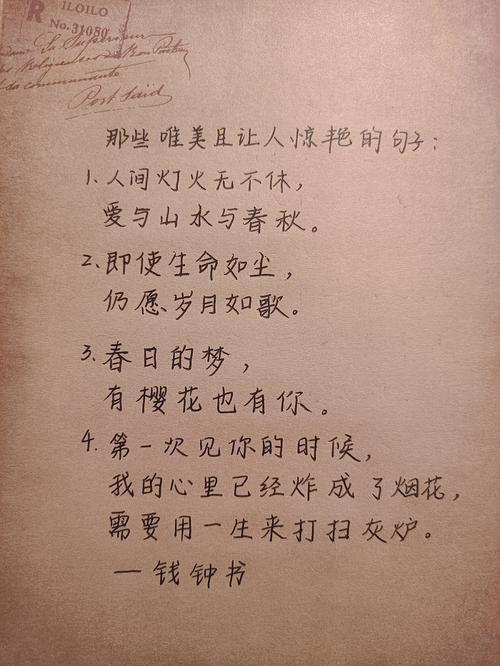 R ILOILO
No.31080
Post Said
那些唯美且让人惊艳的句子：
1、人间灯火无不休，
爱与山水与春秋。
2、即使生命如尘，
仍愿岁月如歌。
3、春日的梦，
有樱花也有你。
4、第一次见你的时候，
我的心里已经炸成了烟花，
需要用一生来打扫灰炉。
一钱钟书